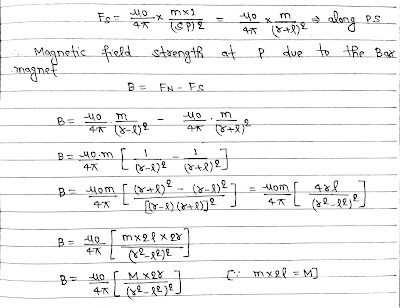 Fs = μ0/4π × m×1/(SP)² = μ0/4π × m/(r+l)² ⇒ along PS
∴ Magnetic field strength at P due to the Bar
magnet
B = FN - Fs
B = μ0/4π . m/(r-l)² - μ0/4π . m/(r+l)²
B = μ0.m/4π [ 1/(r-l)² - 1/(r+l)² ]
B = μ0m/4π [ (r+l)² - (r-l)² / [(r-l)(r+l)]² ] = μ0m/4π [ 4rl/(r²-l²)² ]
B = μ0/4π [ m×2l×2r/(r²-l²)² ]
B = μ0/4π [ M×2r/(r²-l²)² ] [∵ m×2l = M]